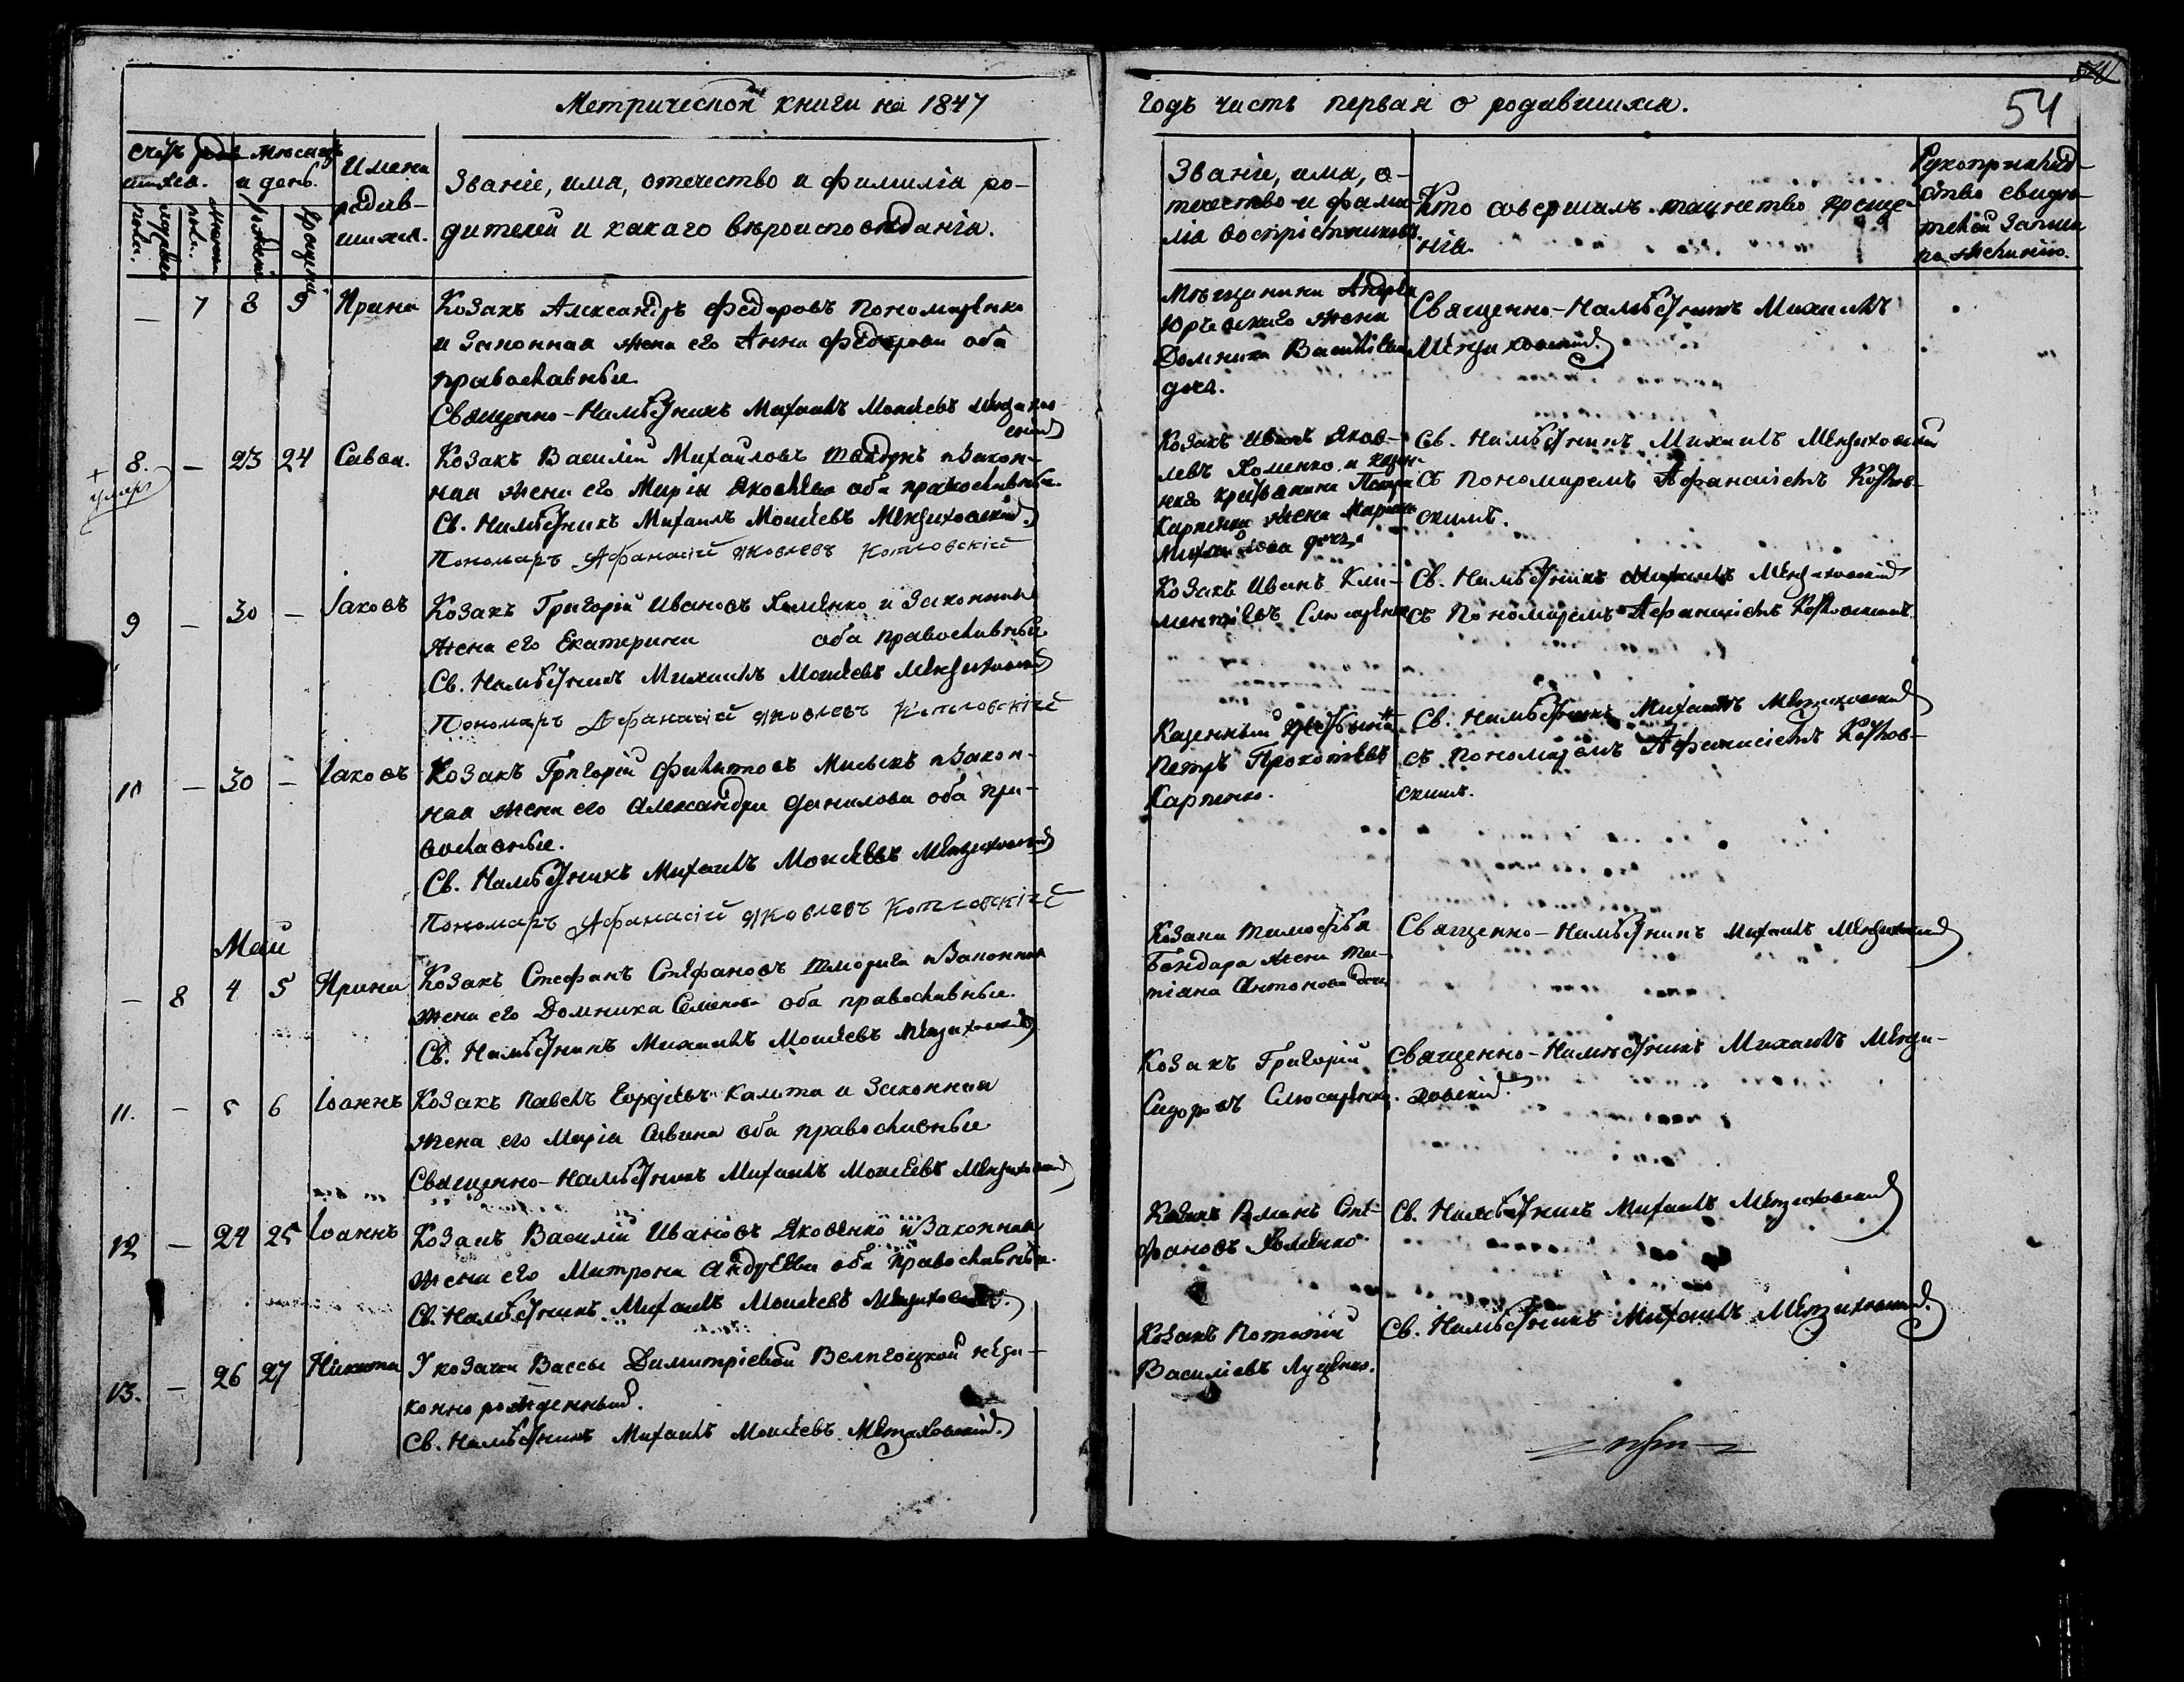 54
Метрической книги на 1847
годъ часть первая о родившихся.
счетъ родившихся.
мужеска пола.
женска пола.
Мѣсяцъ и день.
рожденія
крещенія
Имена родившихся.
Званіе, имя, отечество и фамилія ро-
дителей и какаго вѣроисповѣданія.
Званіе, имя, о-
течество и фами-
лія воспріемниковъ.
Кто совершалъ таинство креще-
нія.
Рукоприклад-
ство свидѣ-
телей записи
по желанію.
— 7 8 9 Ирина
Козакъ Александръ Федоровъ Пономаренко
и законная жена его Анна Федорова оба
православные.
Священно-Намѣстникъ Михаилъ Моисеевъ
Мѣщанина Андрея
жена
Домника Василіева
доч.
Священно-Намѣстникъ Михаилъ
+ умеръ
8. — 23 24 Савва.
Козакъ Василій Михайловъ и закон-
ная жена его Марія Яковлева оба православные.
Св. Намѣстникъ Михаилъ Моисеевъ
Пономарь Афанасій Яковлевъ Котловскій
Козакъ Иванъ Яков-
левъ Хоменко и казен-
наго крестьянина Петра
Карпенка жена
Михайлова доч.
Св. Намѣстникъ Михаилъ
съ Пономаремъ Афанасіемъ Котлов-
скимъ.
9 — 30 — Іаковъ
Козакъ Григорій Ивановъ Хоменко и законная
жена его Екатерина оба православные
Св. Намѣстникъ Михаилъ Моисеевъ
Пономарь Афанасій Яковлевъ Котловскій
Козакъ Иванъ Кли-
ментіевъ Слюсаренко
Св. Намѣстникъ Михаилъ
съ Пономаремъ Афанасіемъ Котловскимъ
10 — 30 — Іаковъ
Козакъ Григорій Филиповъ и закон-
ная жена его Александра Данилова оба пра-
вославные.
Св. Намѣстникъ Михаилъ Моисеевъ
Пономарь Афанасій Яковлевъ Котловскій
Казенный
Петръ Прокопіевъ
Карпенко.
Св. Намѣстникъ Михаилъ
съ пономаремъ Афанасіемъ Котлов-
скимъ.
Май
— 8 4 5 Ирина
Козакъ Стефанъ Стефановъ и законная
жена его Домника Семенова оба православные.
Св. Намѣстникъ Михаилъ Моисеевъ
Козака Тимофѣя
Бондара жена Та-
тіана Антонова доч.
Священно-Намѣстникъ Михаилъ
11. — 5 6 Іоаннъ
Козакъ Павелъ Калита и законная
жена его Марія Саввина оба православные
Священно-Намѣстникъ Михаилъ Моисеевъ
Козакъ Григорій
Сидоровъ Слюсаренко.
Священно-Намѣстникъ Михаилъ
12 — 24 25 Іоаннъ
Козакъ Василій Ивановъ Яковенко и законная
жена его Матрона Андреева оба православные.
Св. Намѣстникъ Михаилъ Моисеевъ
Козакъ Романъ Сте-
фановъ Хоменко
Св. Намѣстникъ Михаилъ
13. — 26 27 Никита
У козачки Вассы Димитріевой неза-
конно рожденный.
Св. Намѣстникъ Михаилъ Моисеевъ
Козакъ Потапій
Василіевъ Луценко.
Св. Намѣстникъ Михаилъ